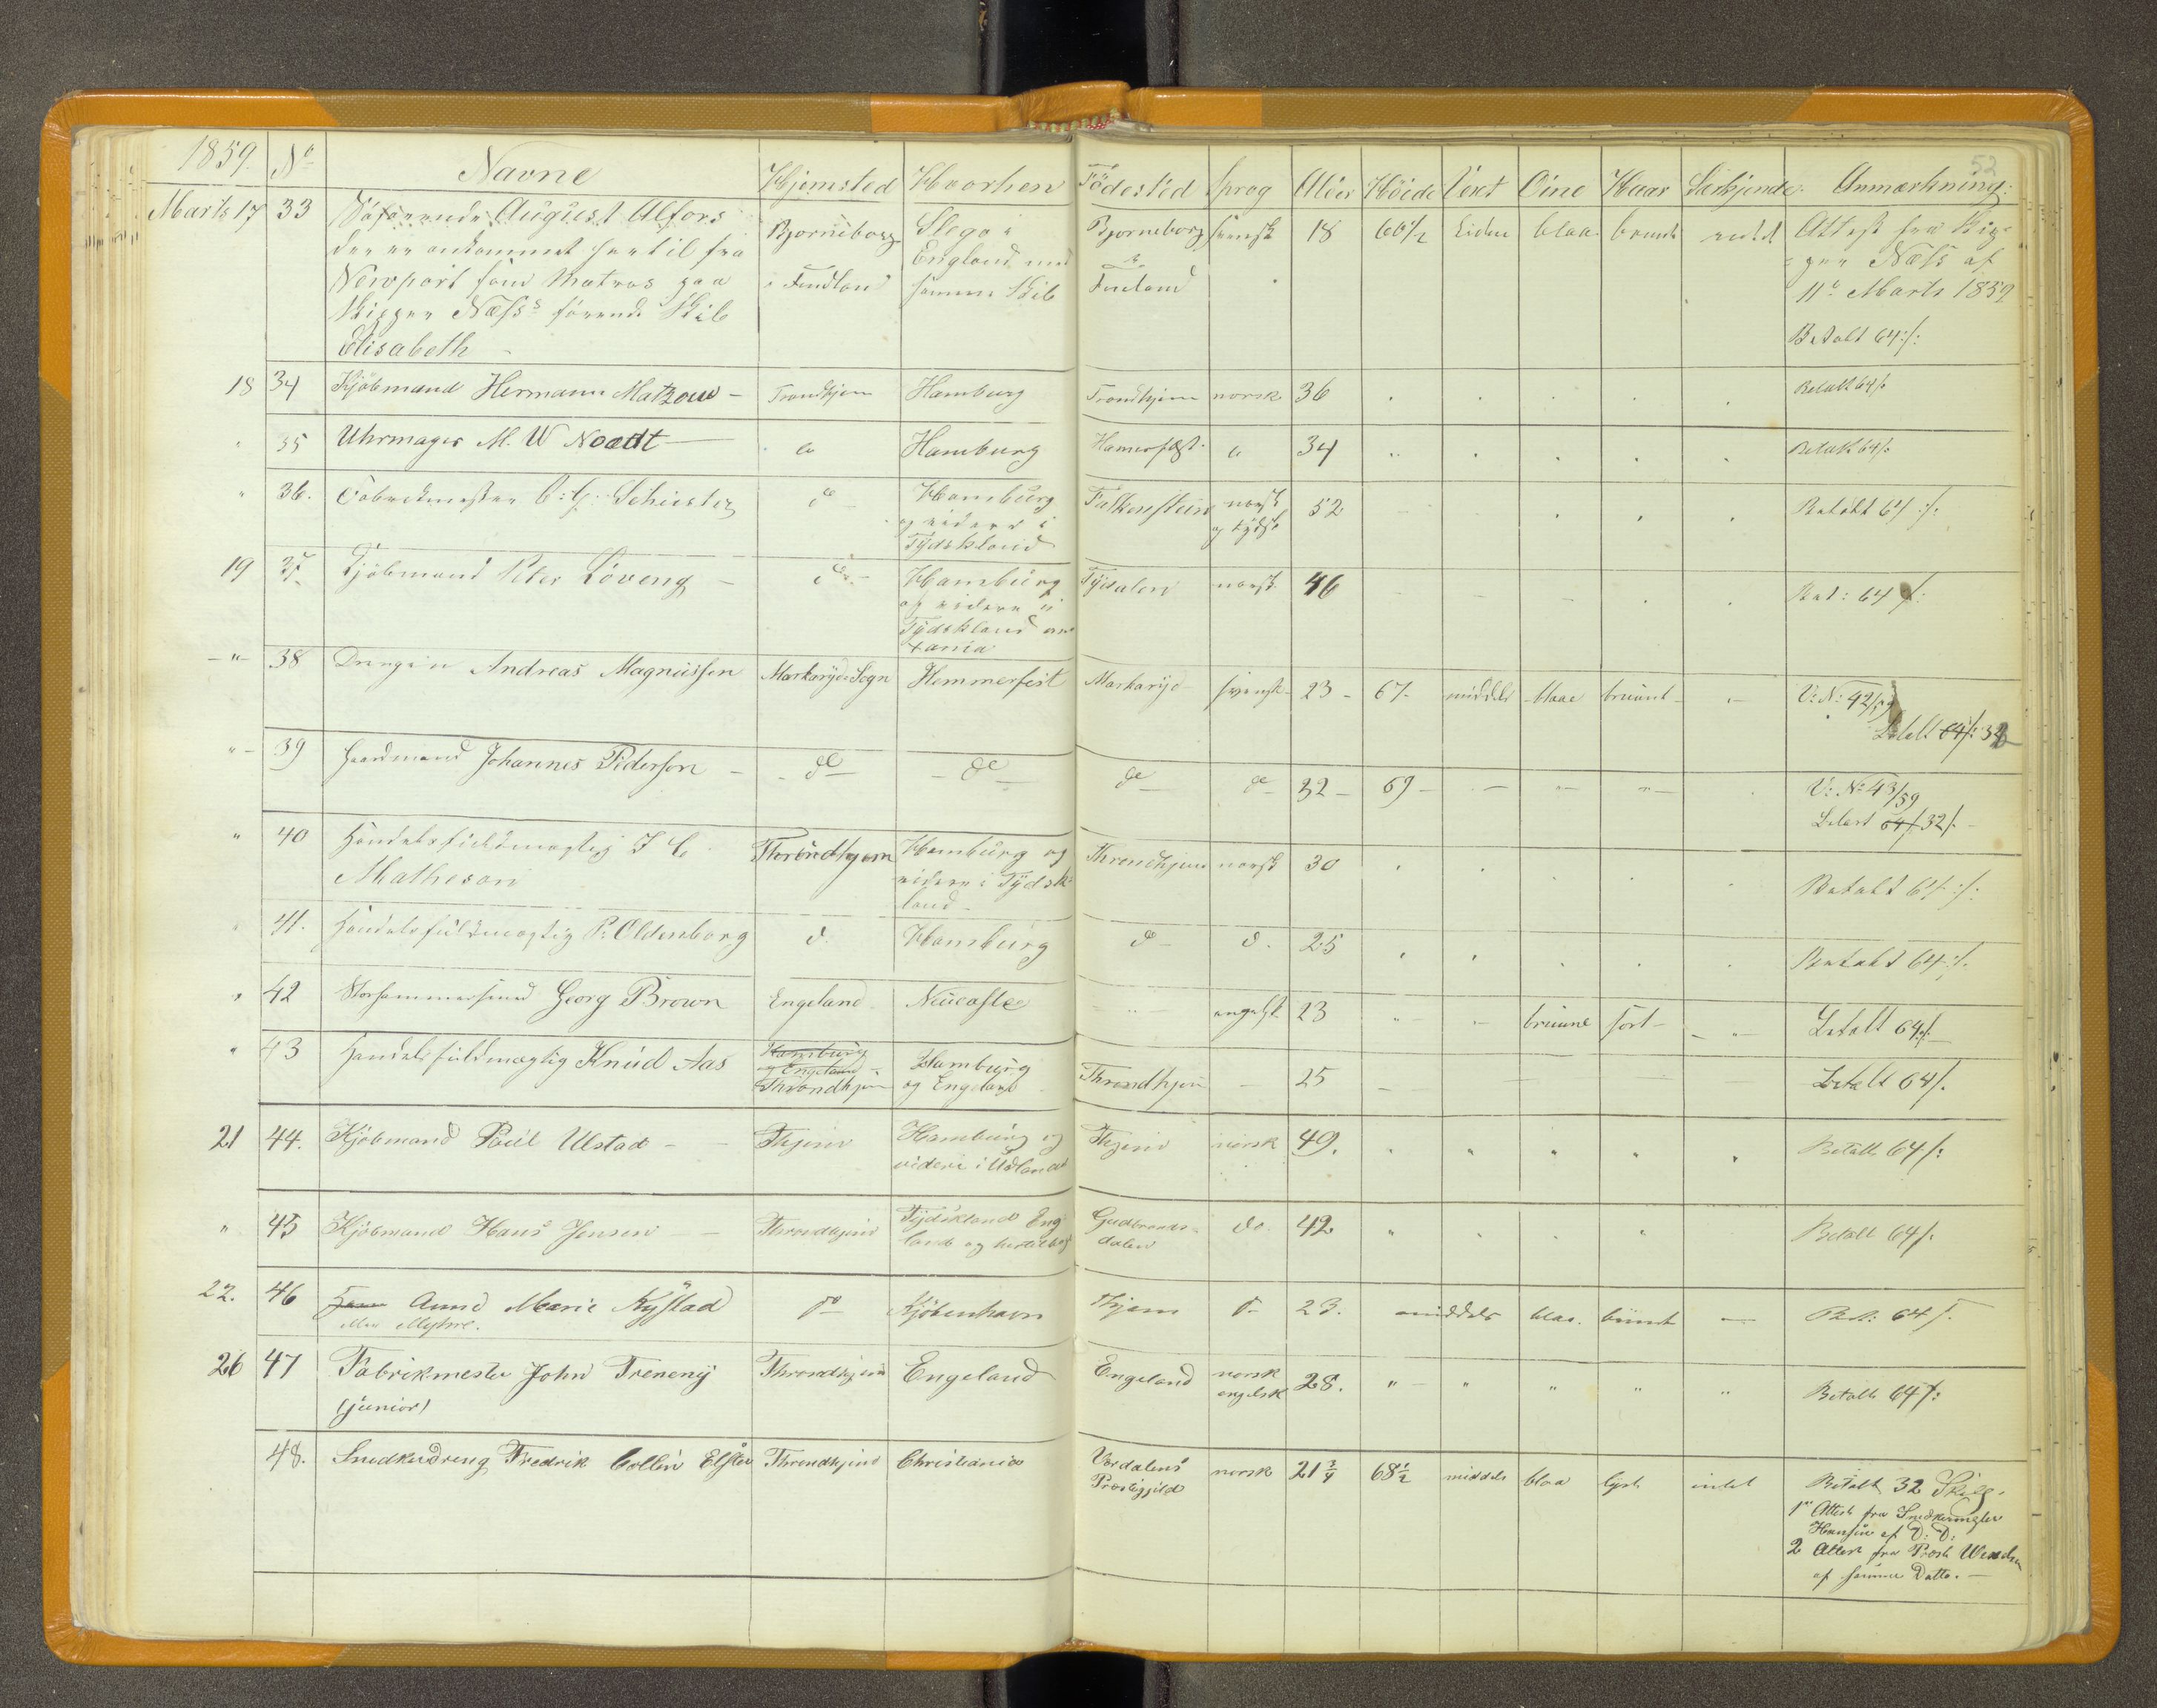 52
1859. No Navne Hjemsted Hvorhen Födested Sprog Alder Höide Vext Öine Haar Særkjende. Anmærkning:
Marts 17 33 Söfarende August Alfors Bjorneborg Slego i Bjorneborg svensk 18 66 1/2 liden blaa brunt intet Attest fra Skip-
der er ankommet hertil fra i Findland England med i per Næss af
Newport som Matros paa samme Skib Finland 11te Marts 1859
Skipper Næss's förende Skib
Elisabeth Betalt 64 /:
18 34 Kjöbmand Hermann Matzow – Trondhjem Hamburg Trondhjem norsk 36 Betalt 64 /:
" 35 Uhrmager M. W Noodt Hamburg Hamerfest 34 Betalt 64 /:
" 36. do Hamburg Falkenstein norsk 52 Betalt 64 /:
og videre i og tydsk
Tydskland
19 37 Kjöbmand Peter Löveng – do Hamburg Tydalen norsk 46 Bet: 64 /:
og videre i
Tydskland
– " – 38 Drengen Andreas Magnussen Markaryd Sogn Hemmerfest Markaryd svensk 23 – 67 – middels blaae bruunt – V: No: 42/59
Betalt 64 /: 32
" – 39 Gaardmand Johannes Pederson – do do do do 32 – 69 – V: No: 43/59
Betalt 64 / 32 /.
" 40 Handelsfuldmægtig J C Throndhjem Hamburg og Throndhjem norsk 30 Betalt 64 :/:
Matheson videre i Tydsk-
land –
" 41. Handelsfuldmægtig P: Oldenborg d. Hamburg d – d. 25 Betalt 64 :/.
" 42 Georg Brown Engeland Neucastle engelsk 23 bruune sort – Betalt 64 /.
" 43 Handelsfuldmægtig Knud Aas Hamburg Hamburg Throndhjem – 25 Betalt 64 /.
og Engeland og Engeland
Throndhjem
21 44. Kjöbmand Paul Ulstad – Thjem Hamburg og Thjem norsk 49. Betalt 64 /:
videre i Udlandet
" 45 Kjöbmand Hans Jensen – Throndhjem Tydskland Eng- Gudbrands- do 42 Betalt 64 /.
land og dalen
22. 46 Anne Marie Nystad do Kjöbenhavn Thjem d– 23. middels blaa. bruunt – Bet: 64 /.
Myhre.
26 47 Fabrikmester John Treneny Throndhjem Engeland Engeland norsk 28. Betalt 64 /:
(junior) engelsk
48. Snedkerdreng Fredrik Collin Elster Throndhjem Christiania Værdalens norsk 21 3/4 68 1/2 middels blaa lyst intet Betalt 32 Skill.
Præstegjeld 1 Attest fra Snedkermester
Hansen af D: D:
2 Attest fra Provst
af samme Datto. –